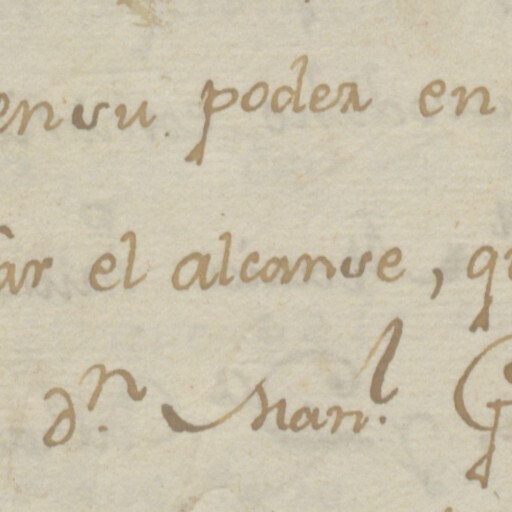 en su poder en
ar el alcanse, qu
Dn. Manl.